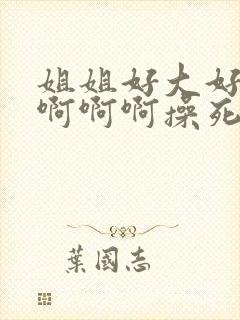 姐姐好大好
啊啊啊操死
葉國志